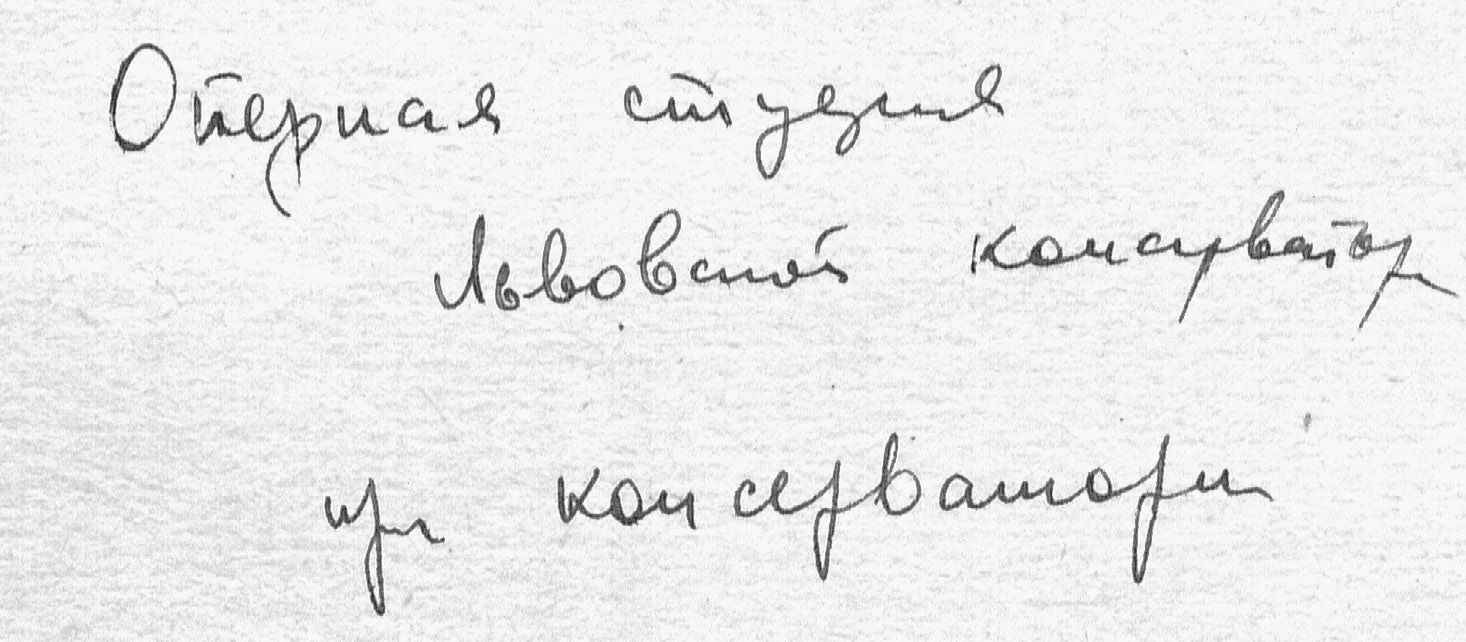 Оперная студия
Львовской консерватор
при консерватории